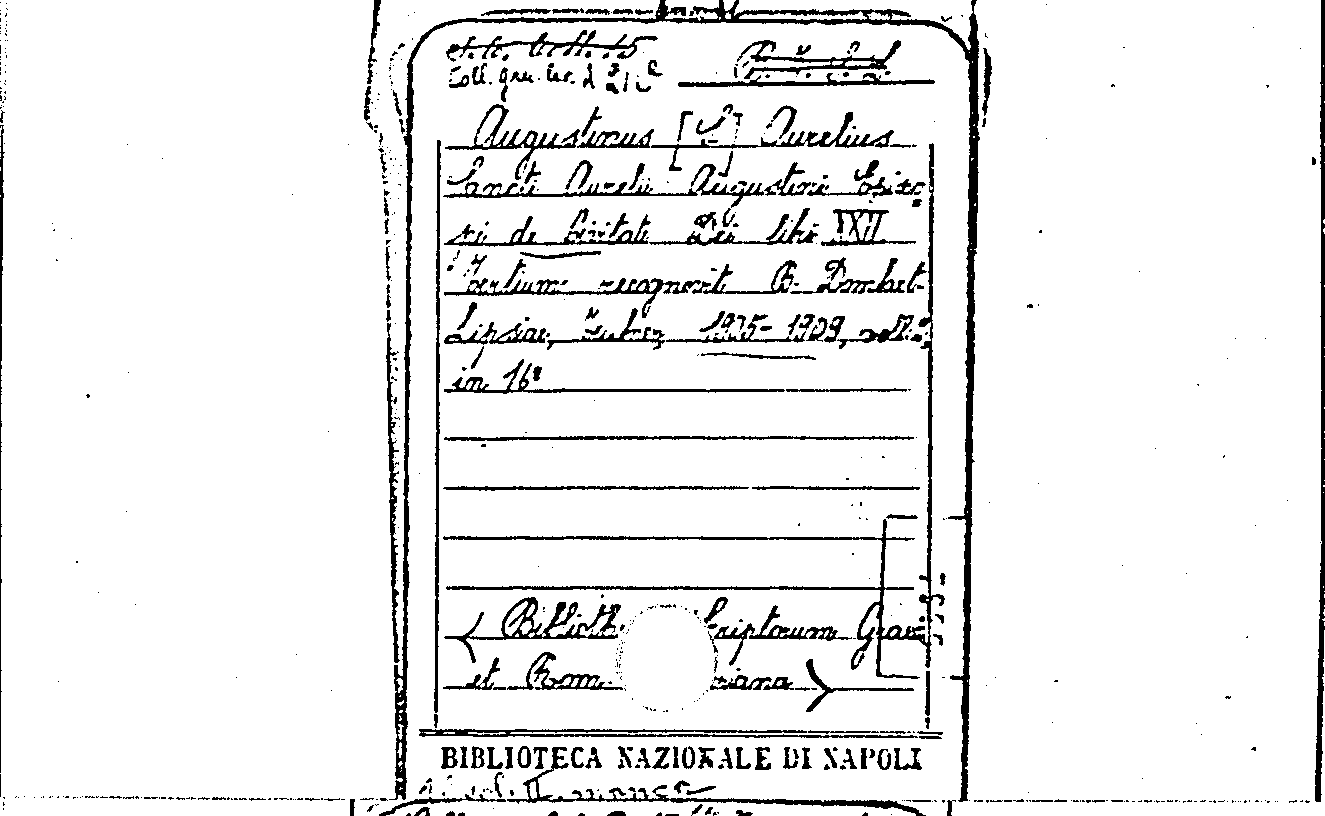 Coll. gr.
Augustinus [S.] Aurelius
Sancti Aurelii Augustini Episco
pi de Civitate Dei libri XXII
Tertium recognovit B. Dombart
Lipsiae, Teubner, 1905-1909,
in 16°
( Biblioth criptorum Graec
et Rom. riana )
BIBLIOTECA NAZIONALE DI NAPOLI
Il vol. II manca